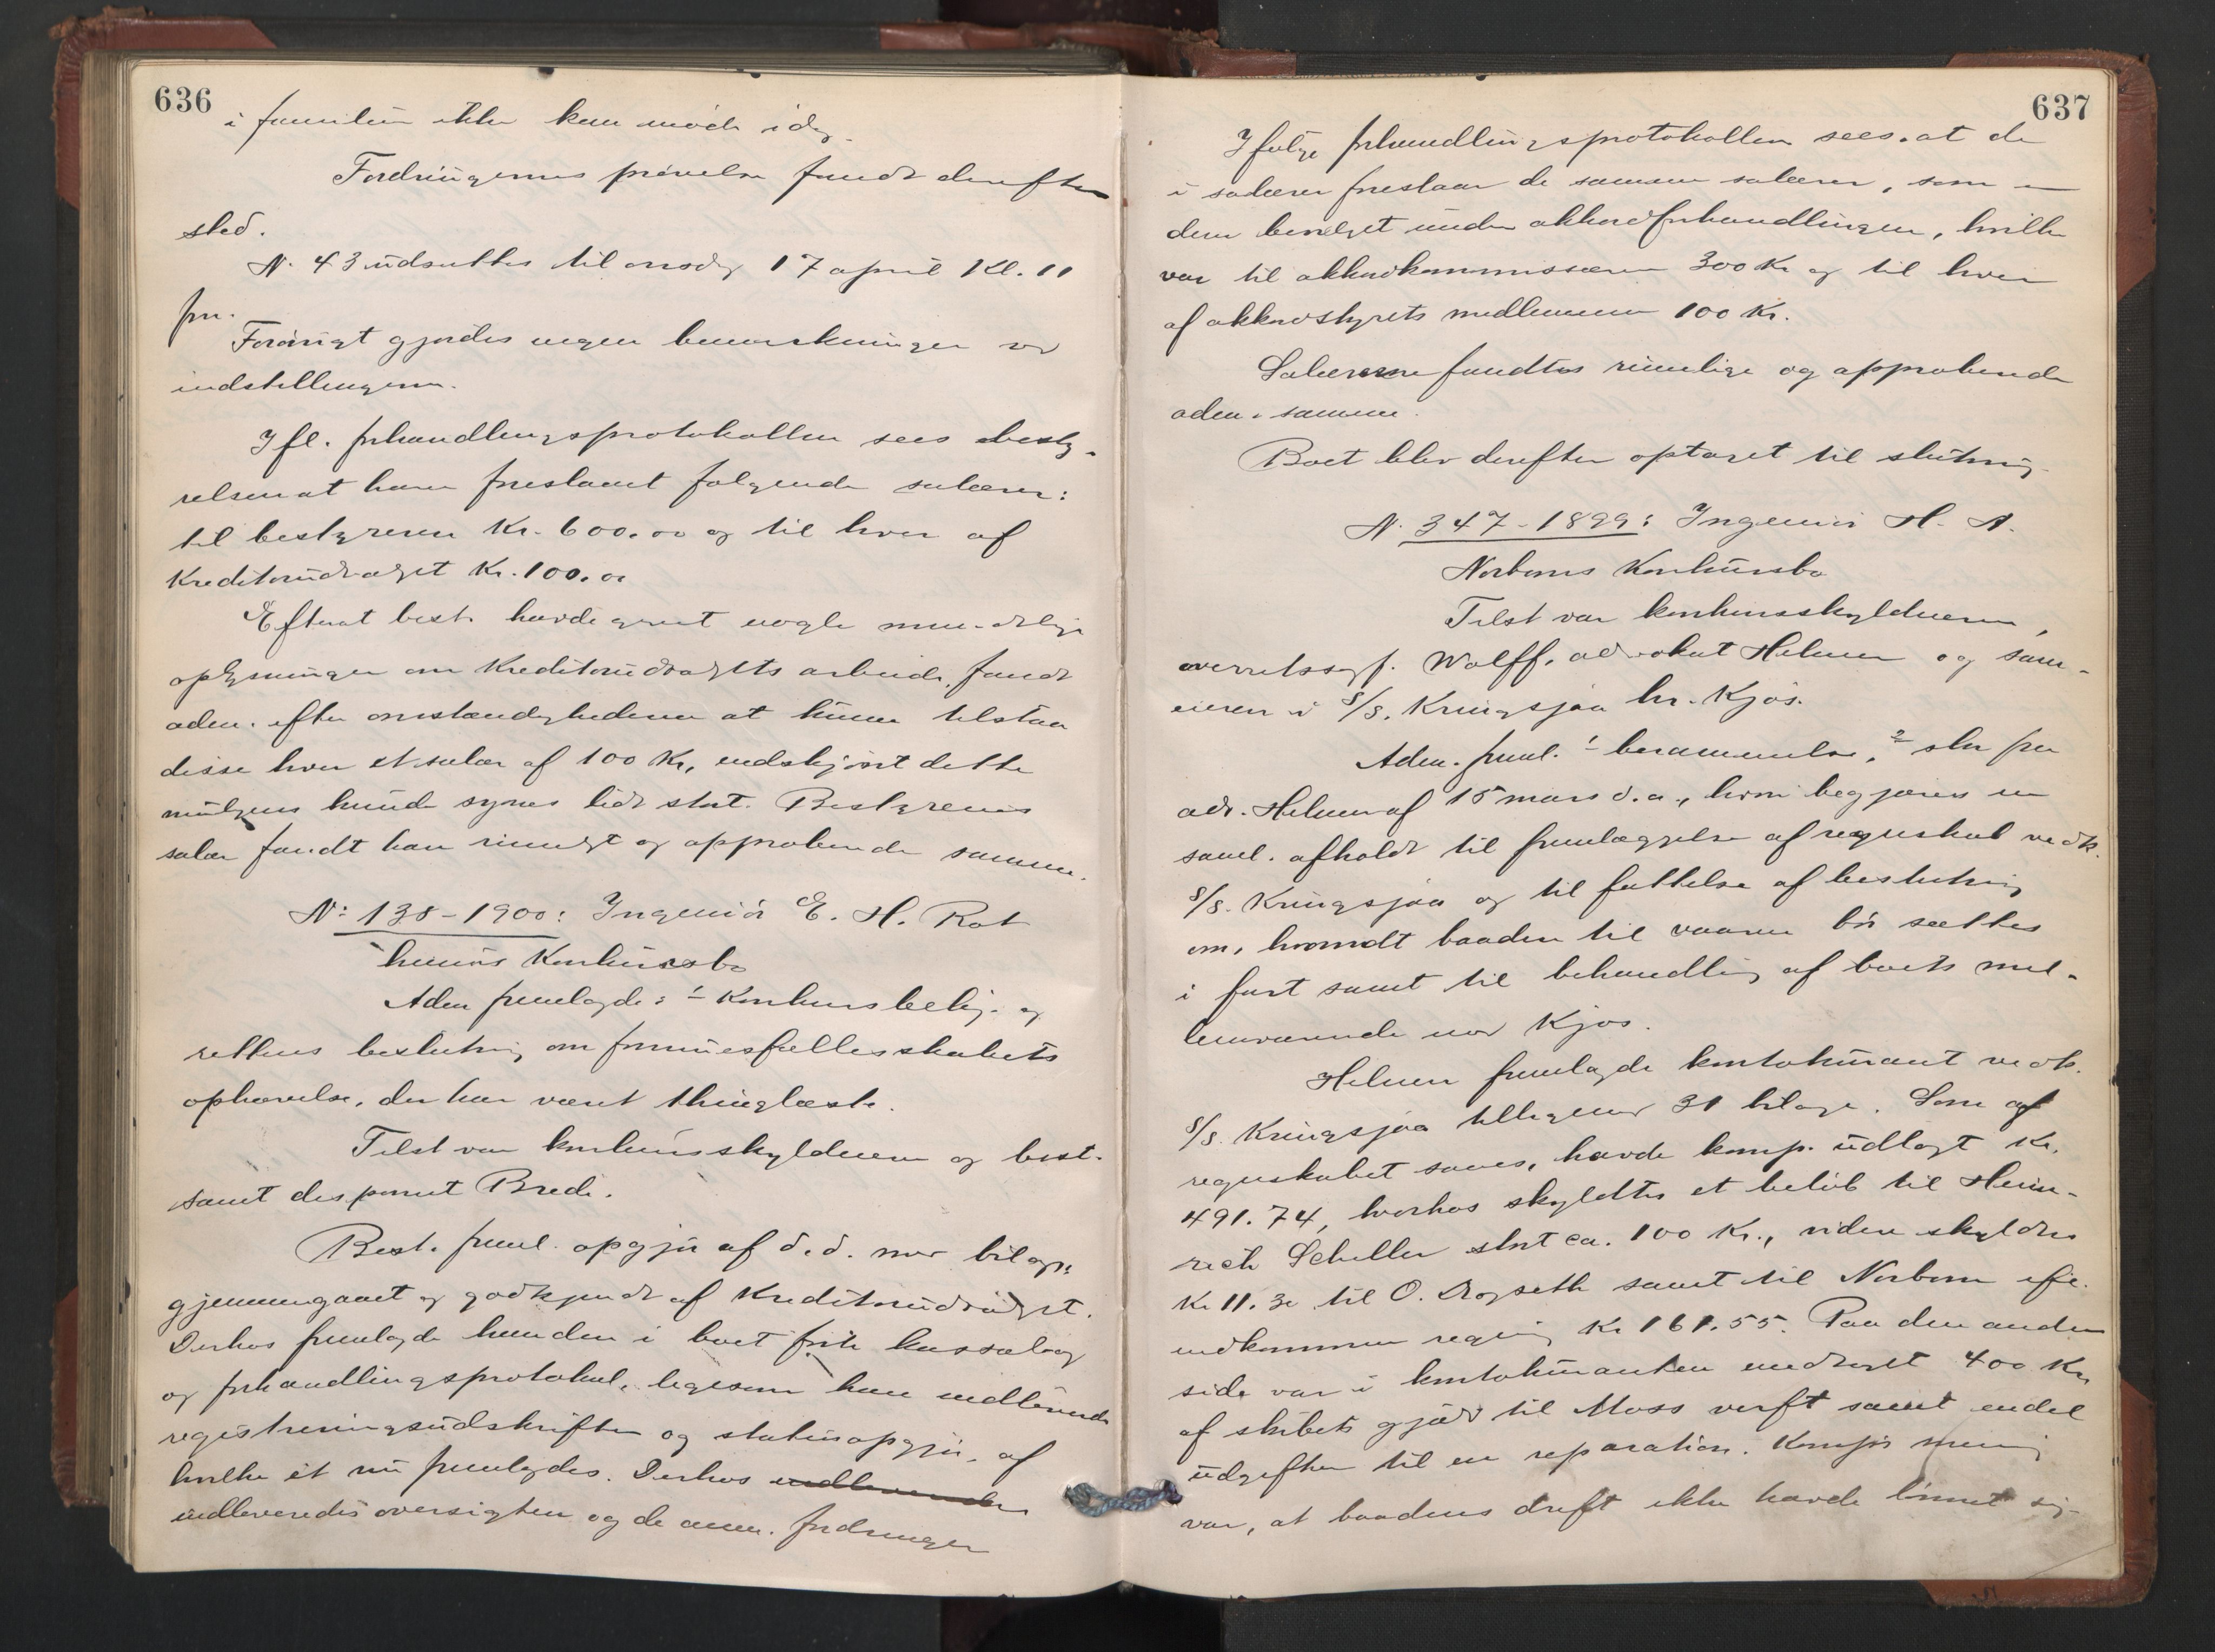 636
i familien ikke kan möde idag.
Fordringernes prövelse fandt derefter
sted.
N. 43 udsættes til onsdag 17 april Kl. 11
fm.
Forövrigt gjordes ingen bemærkninger ved
indstillingen.
Ifl. forhandlingsprotokollen sees besty-
relsen at have foreslaaet følgende salærer:
til bestyreren Kr. 600.00 og til hver af
Kreditorudvalget Kr. 100.00
Efterat best. havde givet nogle mundtlige
oplysninger om Kreditorudvalgets arbeide, fandt
adm. efter omstændighederne at kunne tilstaa
disse hver et salær af 100 Kr, endskjönt dette
muligens kunde synes lidt stort. Bestyrerens
salær fandt han rimeligt og approberede samme.
N: 138 - 1900: Ingeniör E. H. Rot
heims Konkursbo
Adm fremlagde: 1 Konkursbekj. og
rettens beslutning om formuesfællesskabets
ophævelse, der har været thinglæste.
Tilst var konkursskyldneren og best.
samt disponent Brede.
Best. freml. opgjör af d.d. med bilag,
gjennemgaaet og godkjendt af Kreditorudvalget.
Derhos fremlagde han den i boet førte kassabog
og forhandlingsprotokol, ligesom han indleverede
registreringsudskriften og statusopgjör, af
hvilke et nu fremlagdes. Derhos indleveredes
indleveredes oversigten og de anm. fordringer
637
Ifølge forhandlingsprotokollen sees, at de
i salærer foreslaar de samme salærer, som er
dem bevilget under akkordforhandlingen, hvilke
var til akkordkommissæren 300 Kr og til hver
af akkordstyrets medlemmer 100 Kr.
Salærerne fandtes rimelige og approberede
adm. samme.
Boet blev derefter optaget til slutning.
N. 347 - 1899: Ingeniör H. A.
Norboms Konkursbo
Tilst var konkursskyldneren,
overretssagf. Wolff, advokat Helmer og sam-
eieren i S/S. Kringsjaa hr. Kjös.
Adm. freml. 1 berammelse, 2 skr fra
adv. Helmer af 15 mars d.a., hvori begjæres en
saml. afholdt til fremlæggelse af regnskab vedk.
S/S. Kringsjaa og til fattelse af beslutning
om, hvorvidt baaden til vaaren bör sættes
i fart samt til behandling af boets mel-
lemværende med Kjös.
Helmer fremlagde kontokurant vedk.
S/S. Kringsjaa tilligemed 31 bilage. Som af
regnskabet saaes, havde komp. udlagt Kr.
491.74, hvorhos skyldtes et belöb til Hein-
rich Schiller stort ca. 100 Kr., videre skyldtes
Kr 11.30 til O. Dragseth samt til Norbom ifl.
indkommen regning Kr 161.55. Paa den anden
side var i kontokuranten medtaget 400 Kr
af skibets gjæld til Moss verft samt endel
udgifter til en reparation. Komp's mening
var, at baadens drift ikke havde lönnet sig